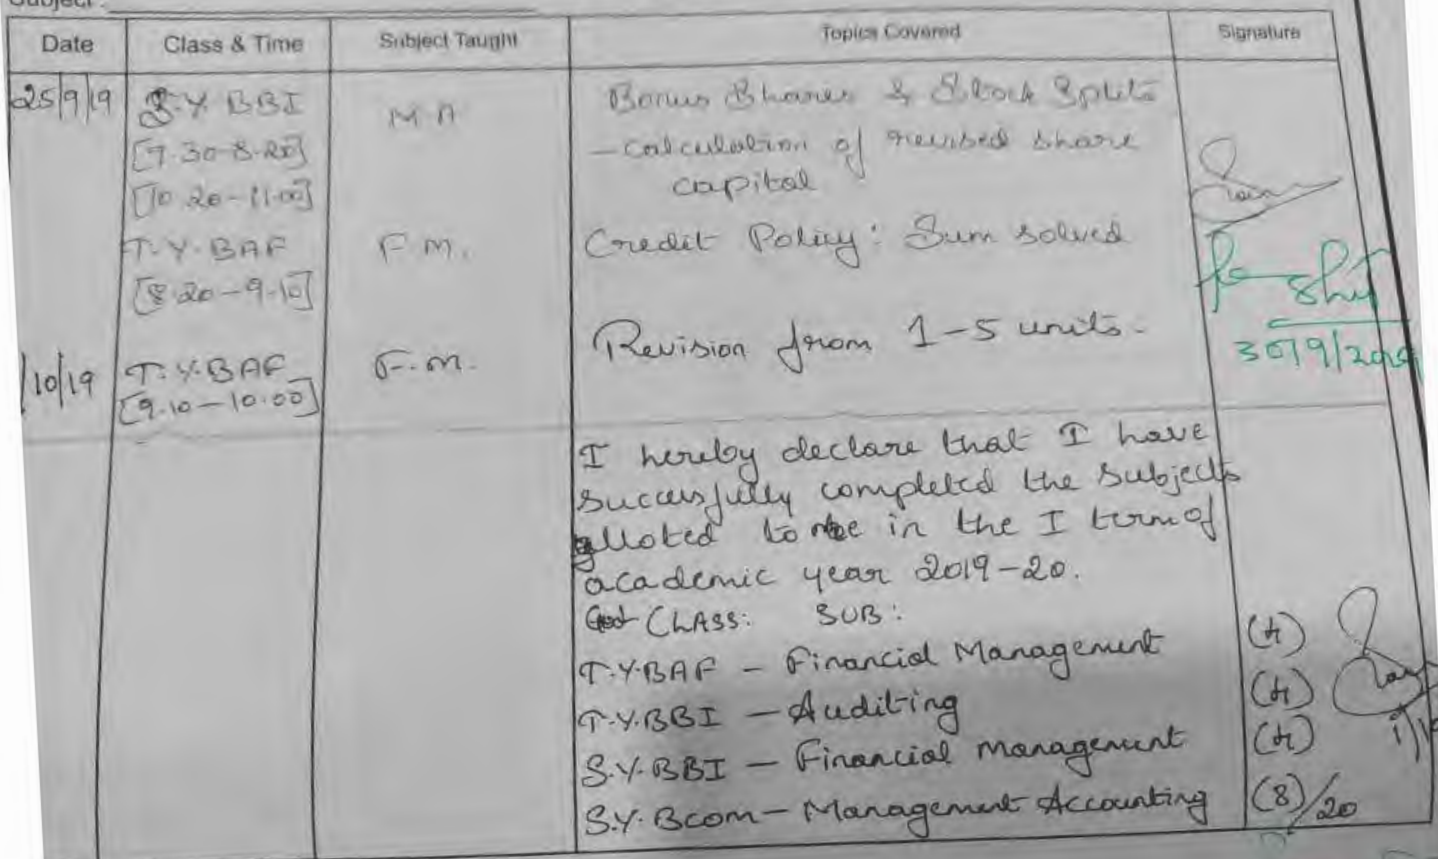 Subject :
Date Class & Time Subject Taught Topics Covered Signature
25/9/19 S.Y. BBI M.A Bonus Shares & Stock Splits
[7.30-8.20] - calculation of revised share
[10.20-11.00] capital
T.Y. BAF F.M. Credit Policy: Sum solved
[8.20-9.10]
30/9/2019
/10/19 T.Y.BAF F.M. Revision from 1-5 units.
[9.10-10.00]
I hereby declare that I have
successfully completed the subjects
alloted to me in the I term of
academic year 2019-20.
CLASS: SUB:
T.Y.BAF - Financial Management
T.Y.BBI - Auditing
S.Y.BBI - Financial Management
S.Y. Bcom - Management Accounting (8)/20